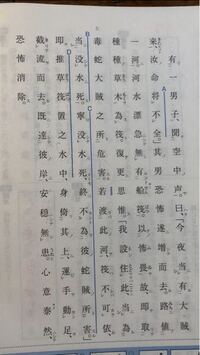 有一男子、聞空中声曰、「今夜当有大賊
来、汝命将不全。」其男恐怖遂増而去。路値
一河、河水漂急、無有船筏。以怖畏故、即取
種種草木為筏、復更思惟、「我設住此、当為
毒蛇大賊之所危害。若渡此河、筏不可依、
当没水死。寧没水死、終不為彼蛇賊所害。」
即推草筏置之水中、身倚其上、運手動足、
截流而去。既達彼岸、安穏無患、心意泰然、
恐怖消除。
A
B
C
D